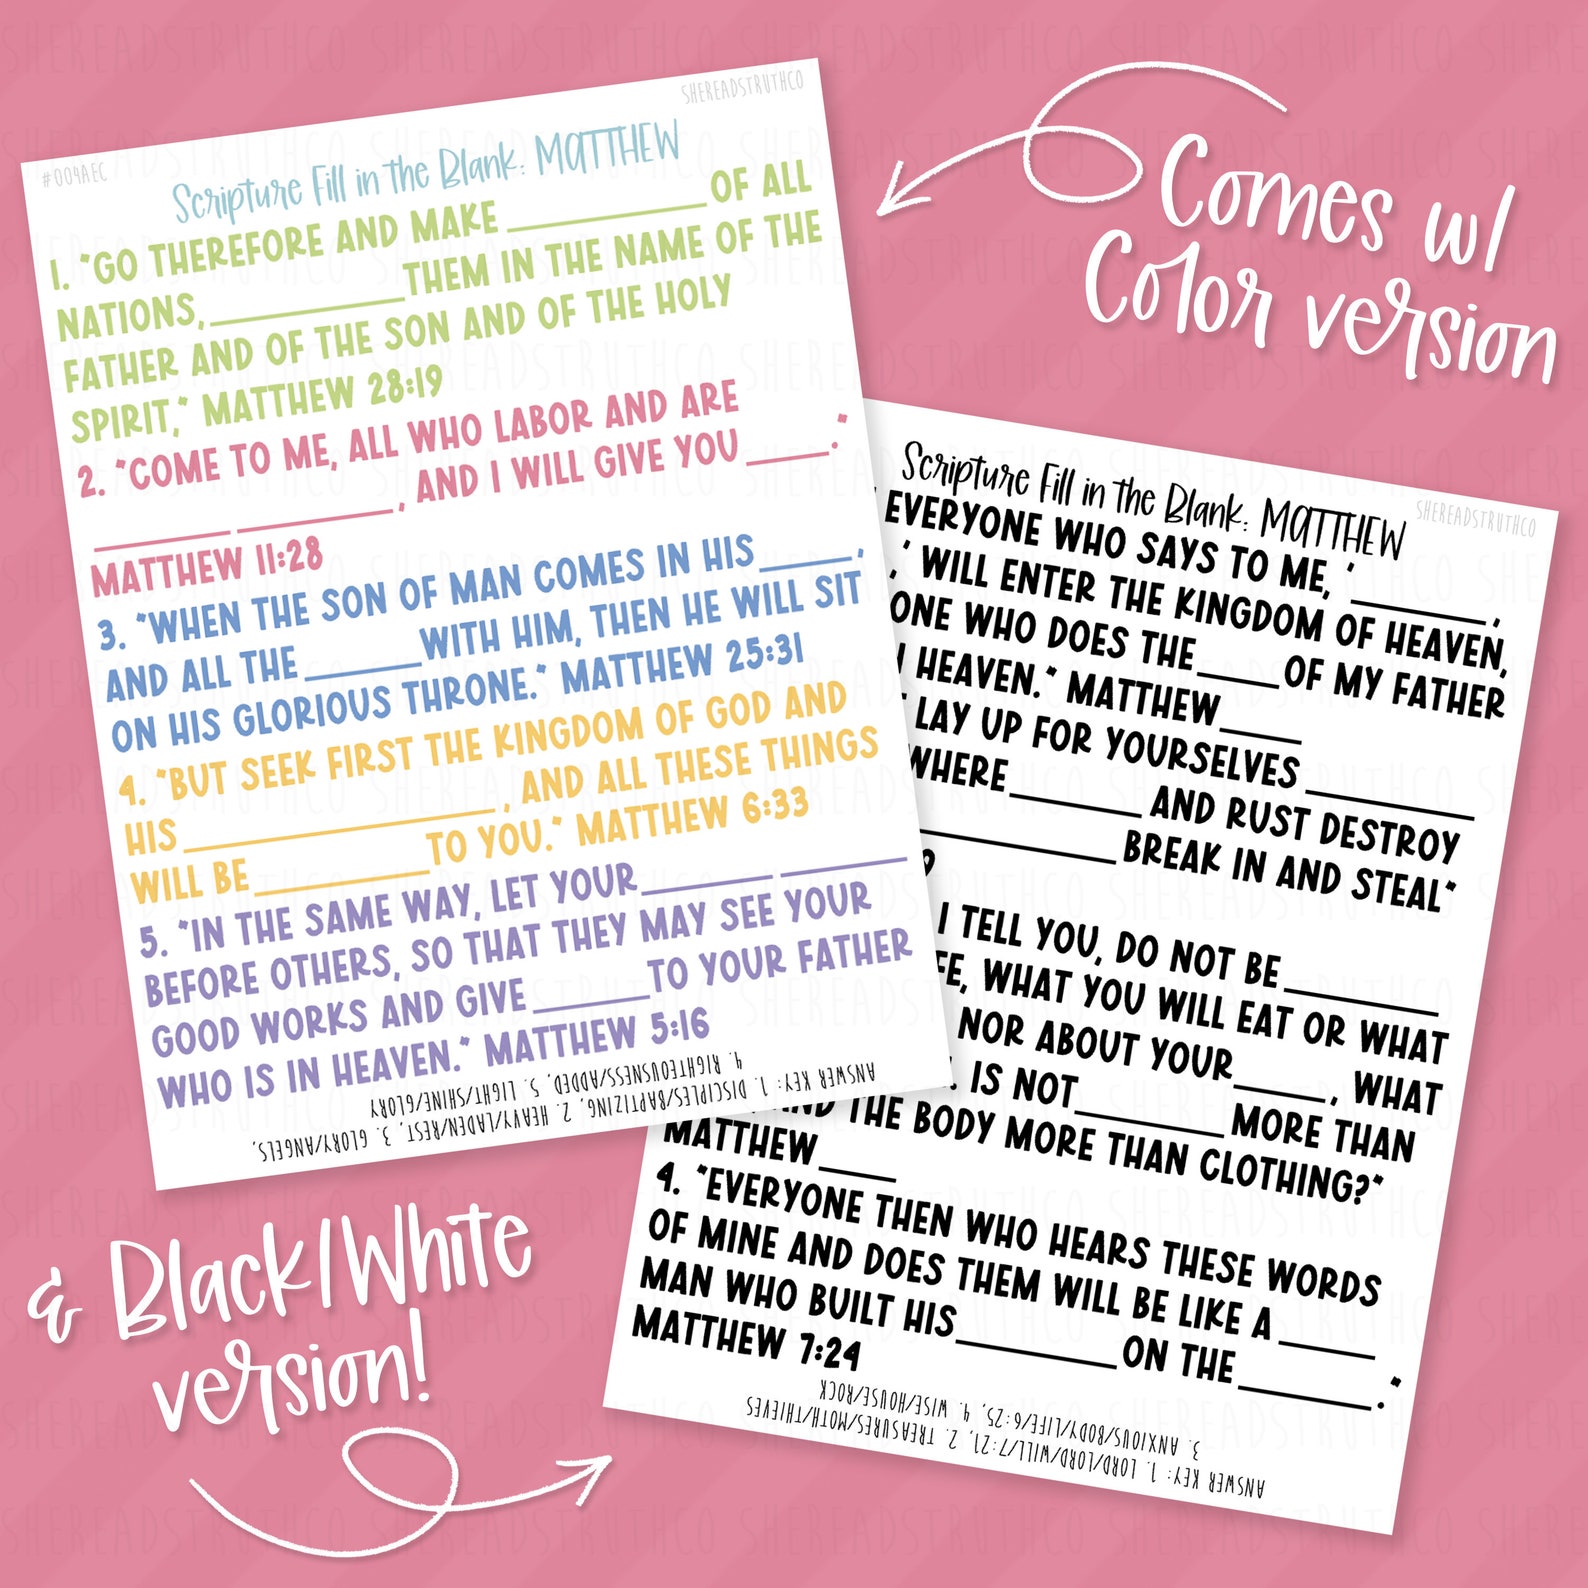 SHEREADSTRUTHCO
#004AEC
Scripture Fill in the Blank: MATTHEW
1. "GO THEREFORE AND MAKE ____ OF ALL
NATIONS, ____ THEM IN THE NAME OF THE
FATHER AND OF THE SON AND OF THE HOLY
SPIRIT," MATTHEW 28:19
2. "COME TO ME, ALL WHO LABOR AND ARE
____ ____, AND I WILL GIVE YOU ____."
MATTHEW 11:28
3. "WHEN THE SON OF MAN COMES IN HIS ____,
AND ALL THE ____ WITH HIM, THEN HE WILL SIT
ON HIS GLORIOUS THRONE." MATTHEW 25:31
4. "BUT SEEK FIRST THE KINGDOM OF GOD AND
HIS ____, AND ALL THESE THINGS
WILL BE ____ TO YOU." MATTHEW 6:33
5. "IN THE SAME WAY, LET YOUR ____ ____
BEFORE OTHERS, SO THAT THEY MAY SEE YOUR
GOOD WORKS AND GIVE ____ TO YOUR FATHER
WHO IS IN HEAVEN." MATTHEW 5:16
ANSWER KEY: 1. DISCIPLES/BAPTIZING, 2. HEAVY/LADEN/REST, 3. GLORY/ANGELS,
4. RIGHTEOUSNESS/ADDED, 5. LIGHT/SHINE/GLORY
Comes w/
Color version
Scripture Fill in the Blank: MATTHEW
SHEREADSTRUTHCO
EVERYONE WHO SAYS TO ME, '____,
,' WILL ENTER THE KINGDOM OF HEAVEN,
ONE WHO DOES THE ____ OF MY FATHER
HEAVEN." MATTHEW ____
LAY UP FOR YOURSELVES ____
WHERE ____ AND RUST DESTROY
____ BREAK IN AND STEAL"
I TELL YOU, DO NOT BE ____
FE, WHAT YOU WILL EAT OR WHAT
NOR ABOUT YOUR ____, WHAT
. IS NOT ____ MORE THAN
AND THE BODY MORE THAN CLOTHING?"
MATTHEW ____
4. "EVERYONE THEN WHO HEARS THESE WORDS
OF MINE AND DOES THEM WILL BE LIKE A ____
MAN WHO BUILT HIS ____ ON THE ____."
MATTHEW 7:24
ANSWER KEY: 1. LORD/LORD/WILL/7:21, 2. TREASURES/MOTH/THIEVES
3. ANXIOUS/BODY/LIFE/6:25, 4. WISE/HOUSE/ROCK
& Black/White
version!